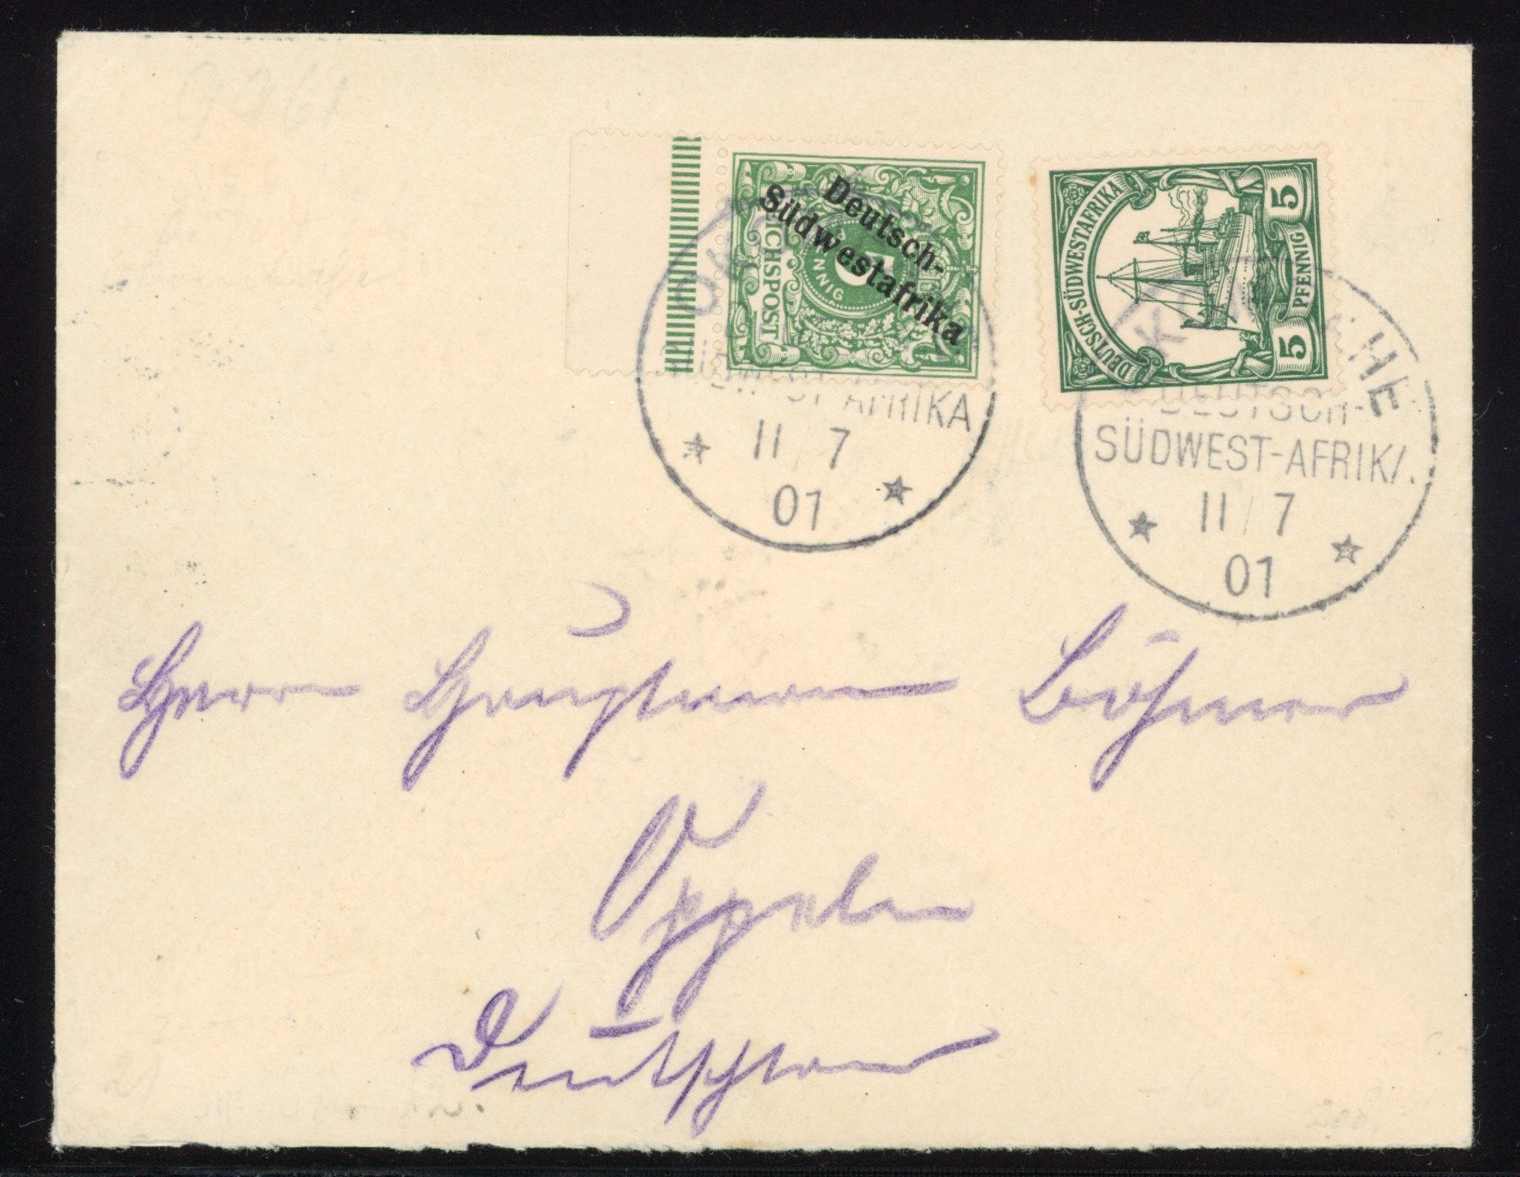 Deutsch-
Südwestafrika
REICHSPOST
5
PFENNIG
DEUTSCH-SÜDWESTAFRIKA
5 PFENNIG 5
SÜDWEST-AFRIKA
11/7
01
DEUTSCH-
SÜDWEST-AFRIKA
11/7
01
Herrn Hauptmann Böhmer
Oppeln
Deutschland